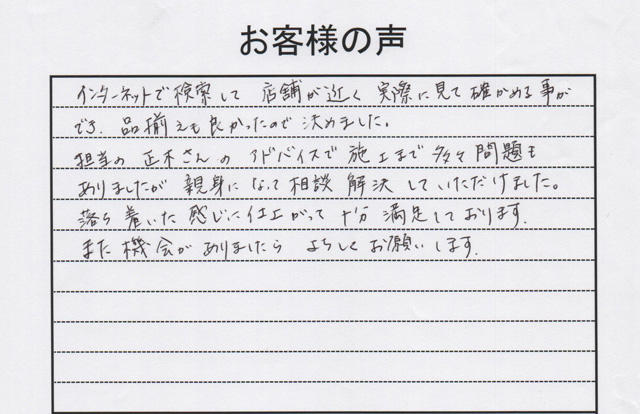 お客様の声
インターネットで検索して 店舗が近く 実際に見て確かめる事が
でき、品揃えも良かったので決めました。
担当の正木さんのアドバイスで施工まで多々問題も
ありましたが親身になって相談解決していただけました。
落ち着いた感じに仕上がって十分満足しております。
また機会がありましたら よろしくお願いします。